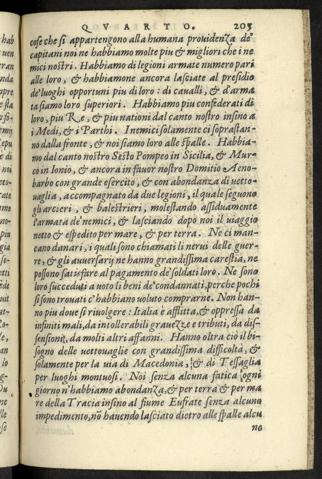 QVARTO. 205
cose che si appartengono alla humana prouidenza de'
capitani noi ne habbiamo molte piu & migliori che i ne
mici nostri. Habbiamo di legioni armate numero pari
alle loro, & habbiamone ancora lasciate al presidio
de'luoghi opportuni piu di loro: di caualli, & d'arma
ta siamo loro superiori. Habbiamo piu confederati di
loro, piu Re, & piu nationi dal canto nostro insino a
i Medi, & i Parthi. Inemici solamente ci soprastan-
no dalla fronte, & noi siamo loro alle spalle. Habbia-
mo dal canto nostro Sesto Pompeo in Sicilia, & Mur-
co in Ionio, & ancora in fauor nostro Domitio Aeno-
barbo con grande esercito, & con abondanza di uetto-
uaglia, accompagnato da due legioni, il quale seguono
gli arcieri, & balestrieri, molestando assiduamente
l'armata de'nemici, & lasciando dopo noi il uiaggio
netto & espedito per mare, & per terra. Ne ci man-
cano danari, i quali sono chiamati li nerui delle guer-
re, & gli auuersarij ne hanno grandissima carestia, ne
possono satisfare al pagamento de'soldati loro. Ne sono
loro succeduti a uoto li beni de'condannati, perche pochi
si sono trouati c'habbiano uoluto comprarne. Non han-
no piu doue si riuolgere: Italia è afflitta, & oppressa da
infiniti mali, da intollerabili grauezze e tributi, da dis-
sensioni, da molti altri affanni. Hanno oltra ciò il bi-
sogno delle uettouaglie con grandissima difficoltà, &
solamente per la uia di Macedonia, & di Tessaglia
per luoghi montuosi. Noi senza alcuna fatica ogni
giorno n'habbiamo abondanza, & per terra & per ma
re della Tracia insino al fiume Eufrate senza alcuno
impedimento, nō hauendo lasciato dietro alle spalle alcu
no